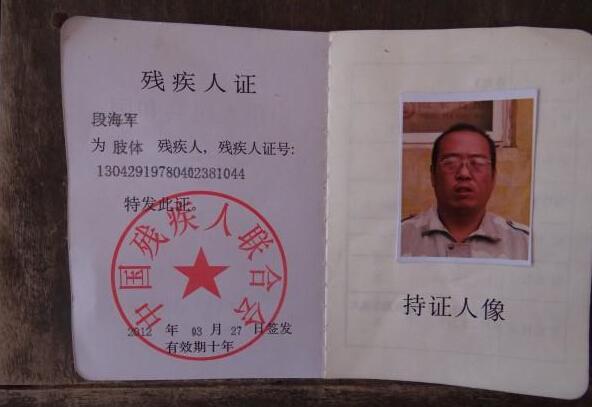 残疾人证
段海军
为 肢体 残疾人，残疾人证号：
13042919780402381044
特发此证。
中国残疾人联合会
2012 年 03 月 27 日签发
有效期十年
持证人像